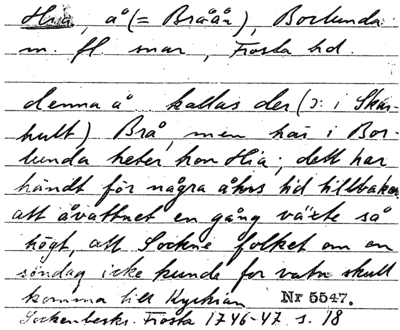 Hia, å (= Bråån), Borlunda
m. fl. snar, Frosta hd.
denna å kallas der (ɔ: i Skar-
hult) Brå, men här i Bor-
lunda heter hon Hia; dett har
händt för några åhrs tid tillbaka,
att åvattnet en gång växte så
högt, att Sockne folket om en
söndag icke kunde for vatn skull
komma till Kyrkian
Nr 5547.
Sockenbeskr. Frosta 1746-47 s. 18